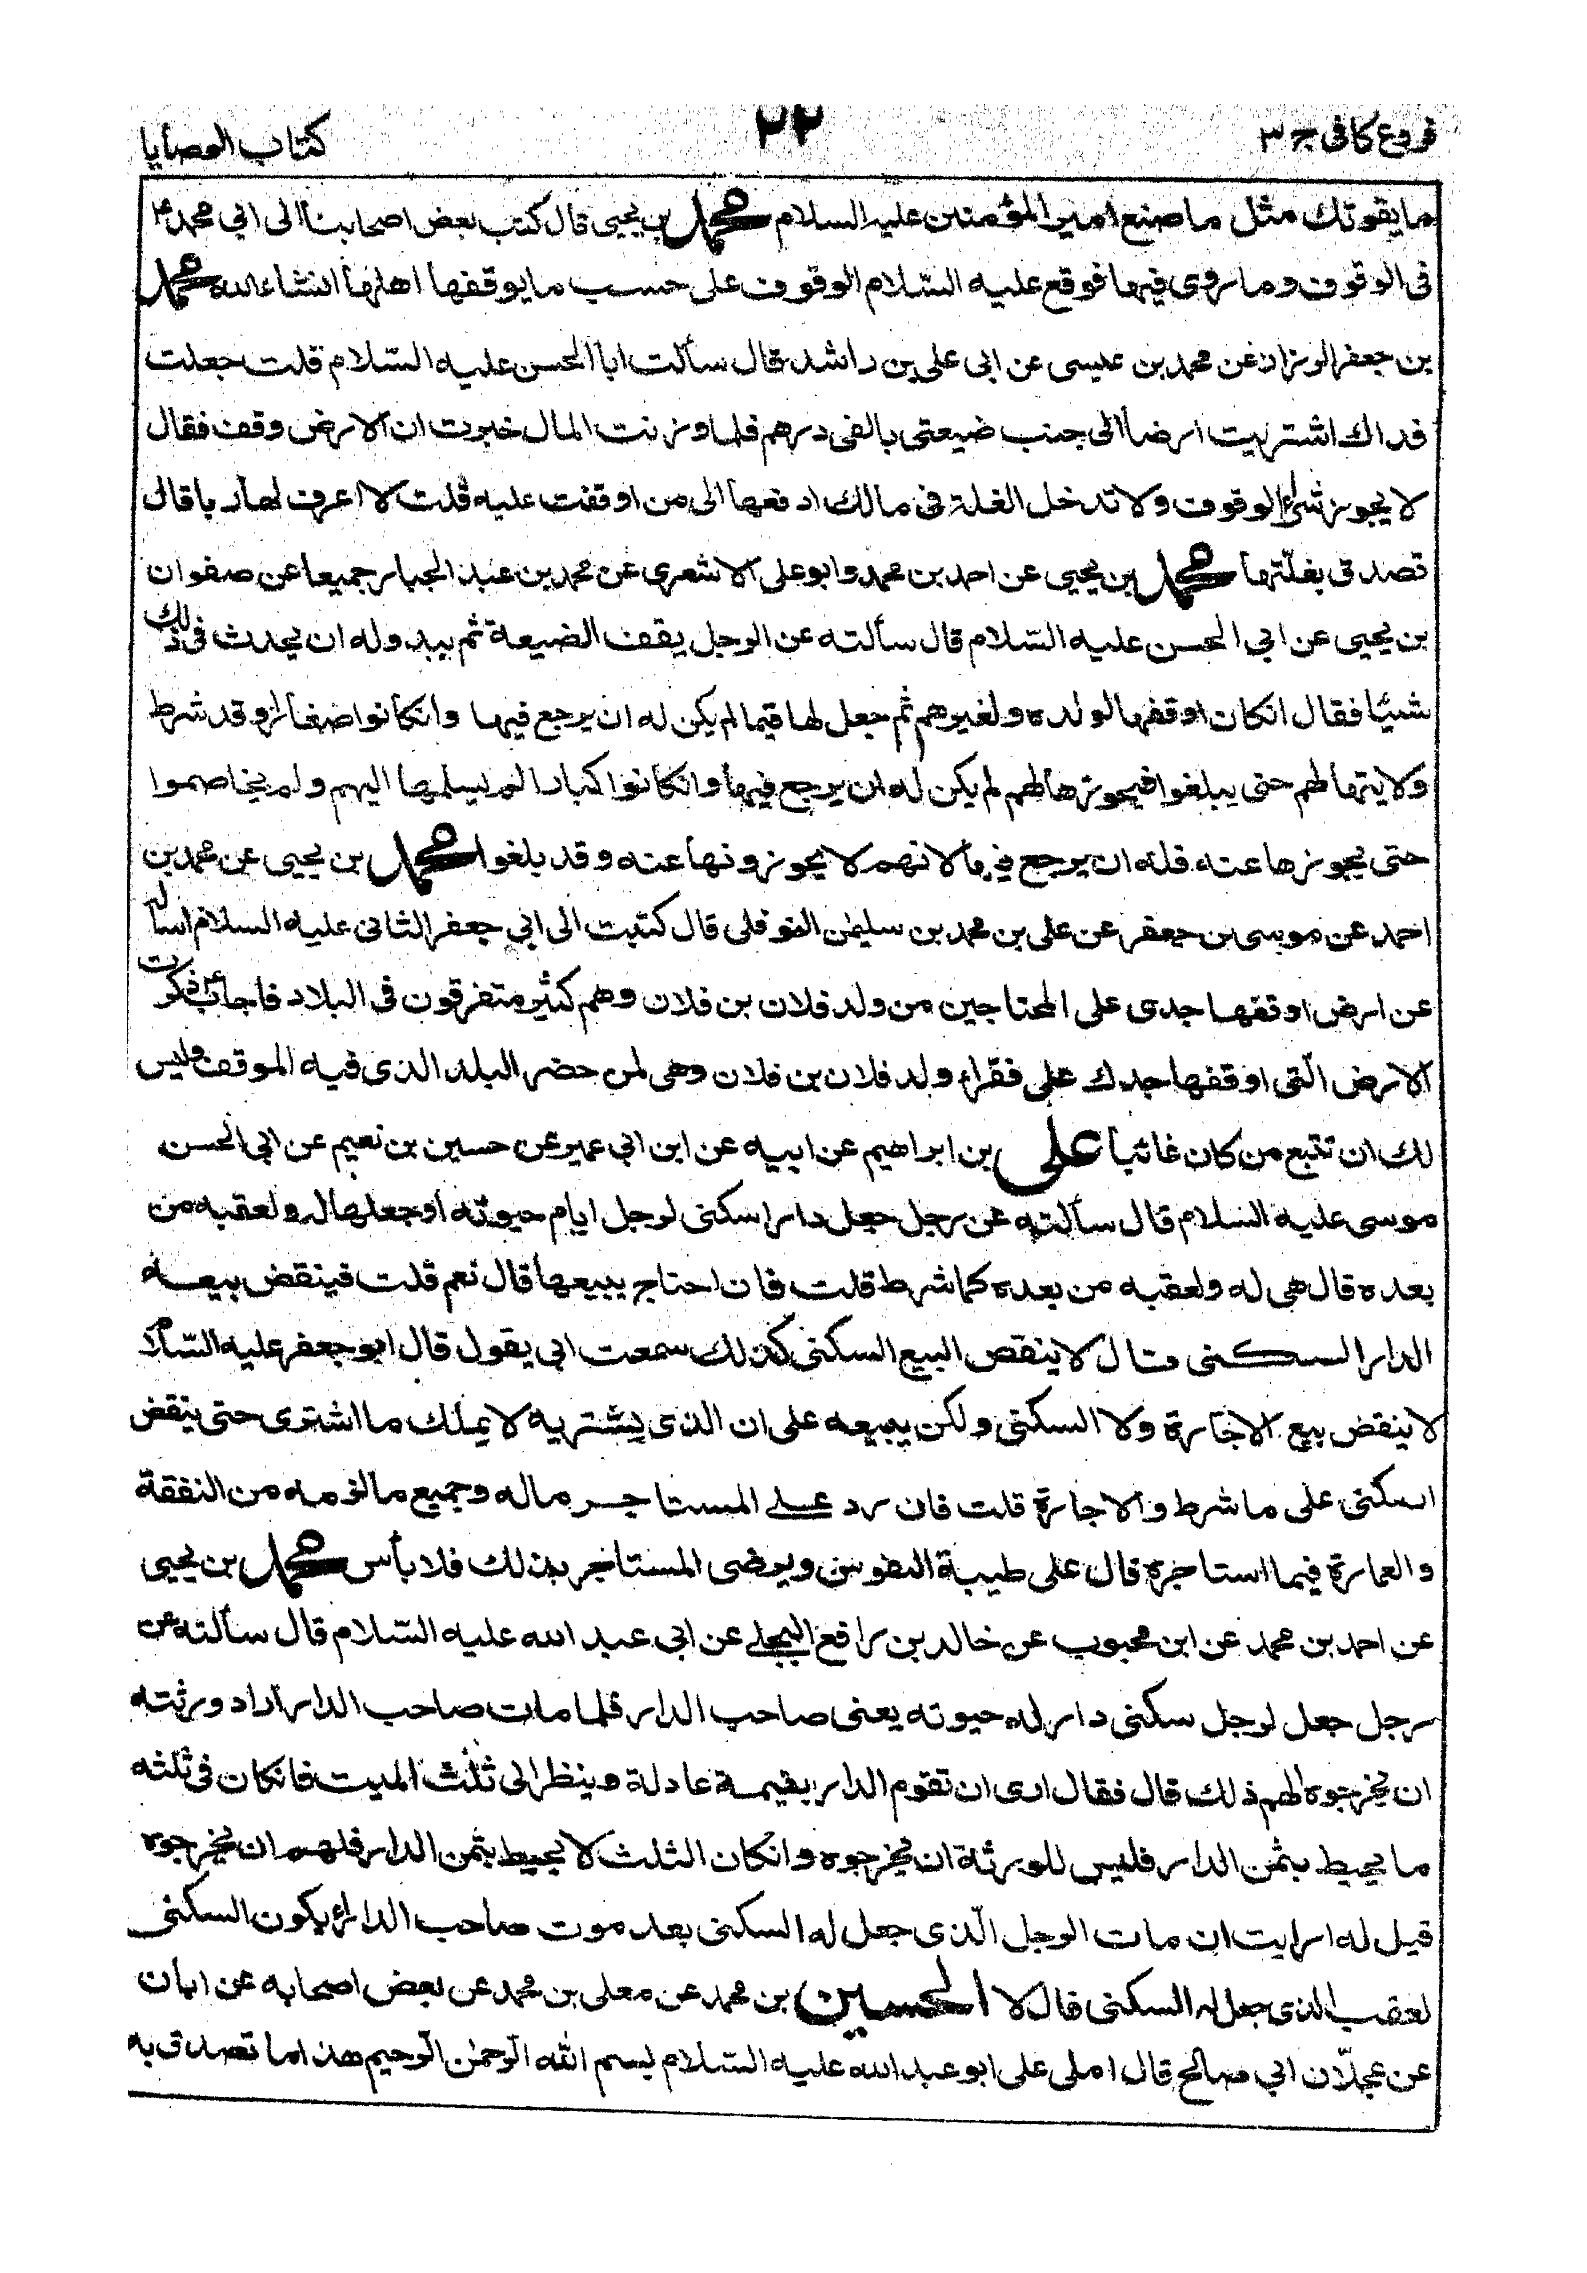 فروع كافى ج ٣
٢٢
كتاب الوصايا
ما يقوتك مثل ما صنع امير المؤمنين عليه السلام محمد بن يحيى قال كتب بعض اصحابنا الى ابي محمد ع
فى الوقوف وما روى فيها فوقع عليه السّلام الوقوف على حسب ما يوقفها اهلها انشاء الله محمد
بن جعفر الرزاز عن محمد بن عيسى عن ابى على بن راشد قال سألت ابا الحسن عليه السّلام قلت جعلت
فداك اشتريت ارضاً الى جنب ضيعتى بالفى درهم فلما وزنت المال خبرت ان الارض وقف فقال
لا يجوز شراء الوقوف ولا تدخل الغلة فى مالك ادفعها الى من اوقفت عليه قلت لا اعرف لها ربا قال
تصدق بغلّتها محمد بن يحيى عن احمد بن محمد وابو على الاشعرى عن محمد بن عبد الجبار جميعا عن صفوان
بن يحيى عن ابي الحسن عليه السّلام قال سألته عن الرجل يقف الضيعة ثم يبدو له ان يحدث فى ذلك
شيئا فقال انكان اوقفها لولده ولغيرهم ثم جعل لها قيما لم يكن له ان يرجع فيها وانكانوا صغارا وقد شرط
ولايتها لهم حتى يبلغوا فيحوزها لهم لم يكن له ان يرجع فيها وانكانوا كبارا لم يسلمها اليهم ولم يخاصموا
حتى يحوزها عنه فله ان يرجع فيها لانهم لا يحوزونها عنه وقد بلغوا محمد بن يحيى عن محمد بن
احمد عن موسى بن جعفر عن على بن محمد بن سليمن النوفلى قال كتبت الى ابي جعفر الثانى عليه السلام اساله
عن ارض اوقفها جدى على المحتاجين من ولد فلان بن فلان وهم كثير متفرقون فى البلاد فاجاب ع ذكرت
الارض الّتى اوقفها جدك على فقراء ولد فلان بن فلان وهى لمن حضر البلد الذى فيه الموقف وليس
لك ان تتبع من كان غائباً على بن ابراهيم عن ابيه عن ابن ابي عمير عن حسين بن نعيم عن ابي الحسن
موسى عليه السلام قال سألته عن رجل جعل دارا سكنى لرجل ايام حيوته او جعلها له ولعقبه من
بعده قال هى له ولعقبه من بعده كما شرط قلت فان احتاج يبيعها قال نعم قلت فينقض بيعه
الدار السكنى قال لا ينقض البيع السكنى كذلك سمعت ابي يقول قال ابو جعفر عليه السّلام
لا ينقض بيع الاجارة ولا السكنى ولكن يبيعه على ان الذى يشتريه لا يملك ما اشترى حتى ينقض
السكنى على ما شرط والاجارة قلت فان رد على المستاجر ماله وجميع ما لزمه من النفقة
والعمارة فيما استاجره قال على طيبة النفوس ويرضى المستاجر بذلك فلا بأس محمد بن يحيى
عن احمد بن محمد عن ابن محبوب عن خالد بن رافع البجلى عن ابي عبد الله عليه السّلام قال سألته عن
رجل جعل لرجل سكنى دار له حيوته يعنى صاحب الدار فلما مات صاحب الدار اراد ورثته
ان يخرجوه الهم ذلك قال فقال ارى ان تقوم الدار بقيمة عادلة وينظر الى ثلث الميت فانكان فى ثلثه
ما يحيط بثمن الدار فليس للورثة ان يخرجوه وانكان الثلث لا يحيط بثمن الدار فلهم ان يخرجوه
قيل له ارايت ان مات الرجل الّذى جعل له السكنى بعد موت صاحب الدار يكون السكنى
لعقب الذى جعل له السكنى قال لا الحسين بن محمد عن معلى بن محمد عن بعض اصحابه عن ابان
عن عجلان ابي صالح قال املى على ابو عبد الله عليه السّلام بسم الله الرّحمن الرّحيم هذا ما تصدق به